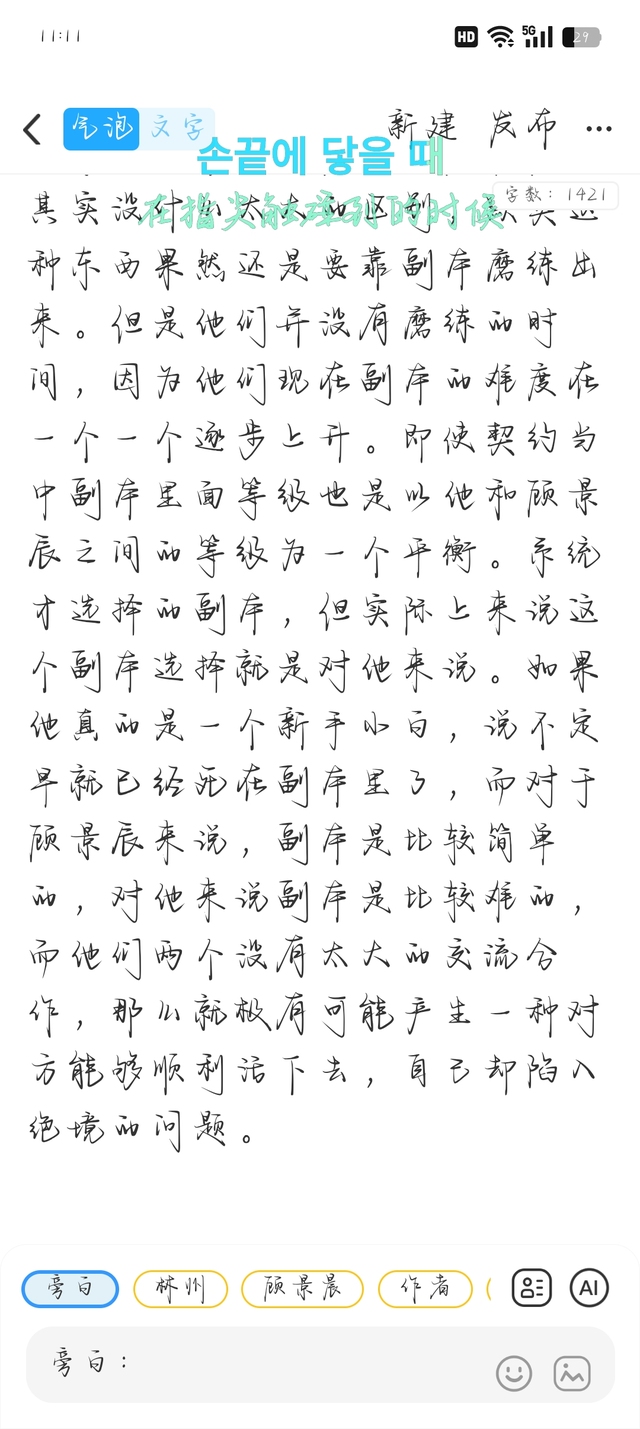 11:11 HD 5G 29
气泡 文字 新建 发布
손끝에 닿을 때
字数：1421
在指尖触碰到的时候
其实没什么太大的区别，
种东西果然还是要靠副本磨练出
来。但是他们并没有磨练的时
间，因为他们现在副本的难度在
一个一个逐步上升。即使契约当
中副本里面等级也是以他和顾景
辰之间的等级为一个平衡。系统
才选择的副本，但实际上来说这
个副本选择就是对他来说。如果
他真的是一个新手小白，说不定
早就已经死在副本里了，而对于
顾景辰来说，副本是比较简单
的，对他来说副本是比较难的，
而他们两个没有太大的交流合
作，那么就极有可能产生一种对
方能够顺利活下去，自己却陷入
绝境的问题。
旁白 林州 顾景晨 作者 AI
旁白：